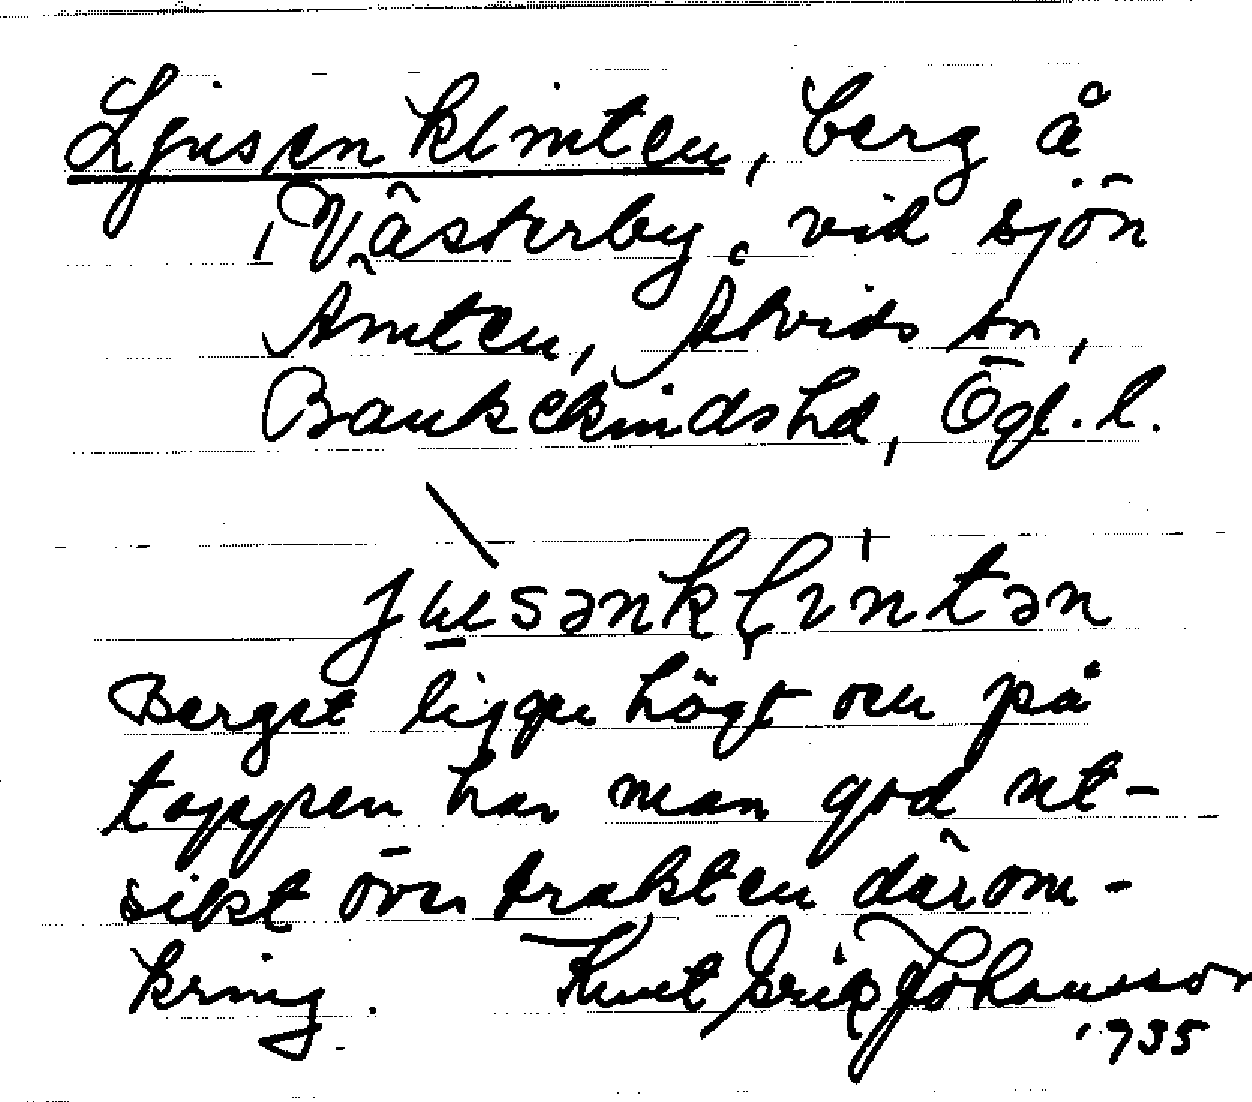 Ljusenklinten, berg å
Västerby, vid sjön
Ämten, Åtvids sn,
Bankekindshd, Ögl. l.
Berget ligger högt och på
toppen har man god ut-
sikt över trakten därom-
kring. Knut Erik Johansson
1935